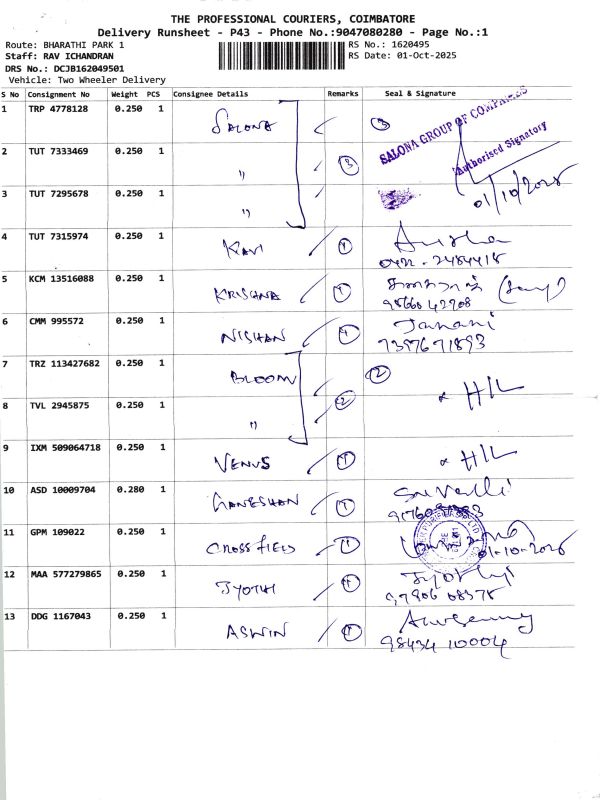 THE PROFESSIONAL COURIERS, COIMBATORE
Delivery Runsheet - P43 - Phone No.:9047080280 - Page No.:1
Route: BHARATHI PARK 1
RS No.: 1620495
Staff: RAV ICHANDRAN
RS Date: 01-Oct-2025
DRS No.: DCJB162049501
Vehicle: Two Wheeler Delivery
S No Consignment No Weight PCS Consignee Details Remarks Seal & Signature
1 TRP 4778128 0.250 1 SALONA 3 SALONA GROUP OF COMPANIES
Authorised Signatory
2 TUT 7333469 0.250 1 " 3
01/10/2025
3 TUT 7295678 0.250 1 "
4 TUT 7315974 0.250 1 RAVI 1
0422 - 2484418
5 KCM 13516088 0.250 1 KRISHNA 1
6 CMM 995572 0.250 1 NISHAN 1 Janani
7397671893
7 TRZ 113427682 0.250 1 BLOOM 2
H/L
8 TVL 2945875 0.250 1 " 2
9 IXM 509064718 0.250 1 VENUS 1 H/L
10 ASD 10009704 0.280 1 GANESHAN 1 Sri Valli
11 GPM 109022 0.250 1 CROSS FIELD 1
01-10-2025
12 MAA 577279865 0.250 1 JYOTHI 1 Jyothi
97906 08378
13 DDG 1167043 0.250 1 ASWIN 1
98434 10004